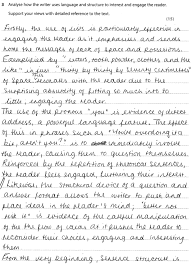 8 Analyse how the writer uses language and structure to interest and engage the reader.
Support your views with detailed reference to the text.
(15)
Firstly, the use of lists is particularly effective in
engaging the reader as it emphasises and sends
home the messages of lack of space and possessions.
Exemplified by "
tooth powder, clothes and the
" "thirty by thirty by seventy centimetres"
of space," the reader due to the
surprising absurdity of fitting so much into so
little, engaging the reader.
The use of the pronoun "you" is evidence of direct
address, a powerful language feature. The effect
of this in phrases such as "You're overdoing it a
bit, aren't you?" is to immediately involve
the reader, causing them to question themselves.
Reinforced by the repetition of rhetorical sentences, the
reader feels engaged, furthering their interest.
Likewise, the structural device of a question and
answer format allows the writer to push and
place ideas in the reader's mind, "better
is" is evidence of the careful manipulation
of the flow of ideas as it pushes the reader to
reconsider their choices, engaging and interesting
them.
From the very beginning, general structure is